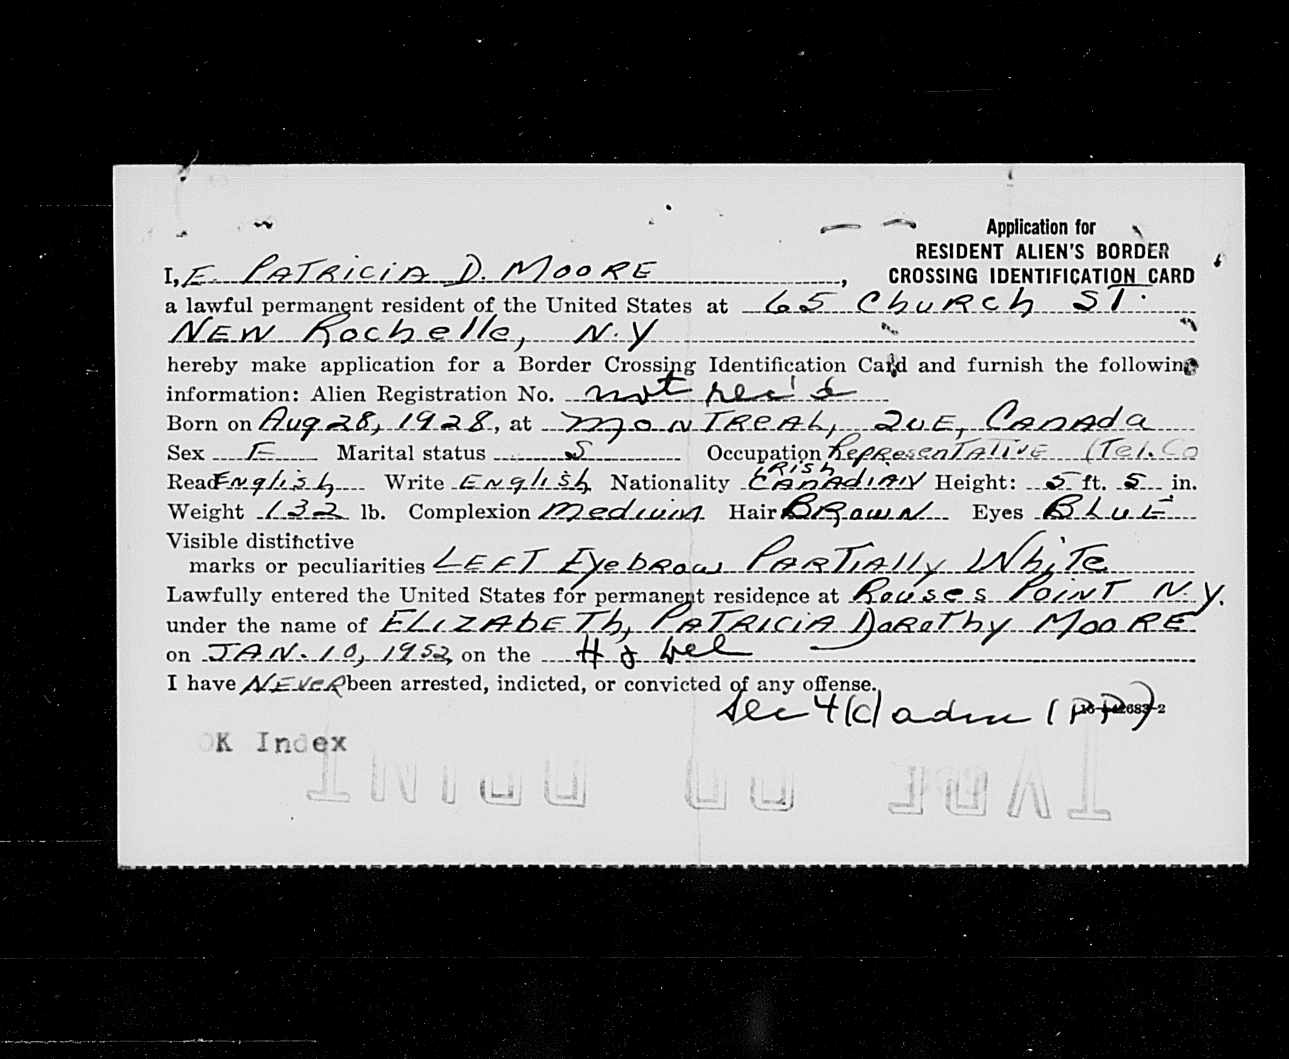 Application for
RESIDENT ALIEN'S BORDER
CROSSING IDENTIFICATION CARD
I, E. PATRICIA D. MOORE,
a lawful permanent resident of the United States at 65 Church ST.
NEW Rochelle, N.Y
hereby make application for a Border Crossing Identification Card and furnish the following
information: Alien Registration No. not rec'd
Born on Aug 28, 1928, at MONTREAL, QUE, CANADA
Sex F Marital status S Occupation Representative (Tel. Co
Read English Write English Nationality Irish CANADIAN Height: 5 ft. 5 in.
Weight 132 lb. Complexion Medium Hair BROWN Eyes BLUE
Visible distinctive
marks or peculiarities LEFT Eyebrow PARTIAlly White
Lawfully entered the United States for permanent residence at Rouses POINT N.Y.
under the name of ELIZABETh, PATRICIA DoRoThy MOORE
on JAN. 10, 1952 on the
I have NEVER been arrested, indicted, or convicted of any offense.
Sec 4(c) adm (PP)
OK Index